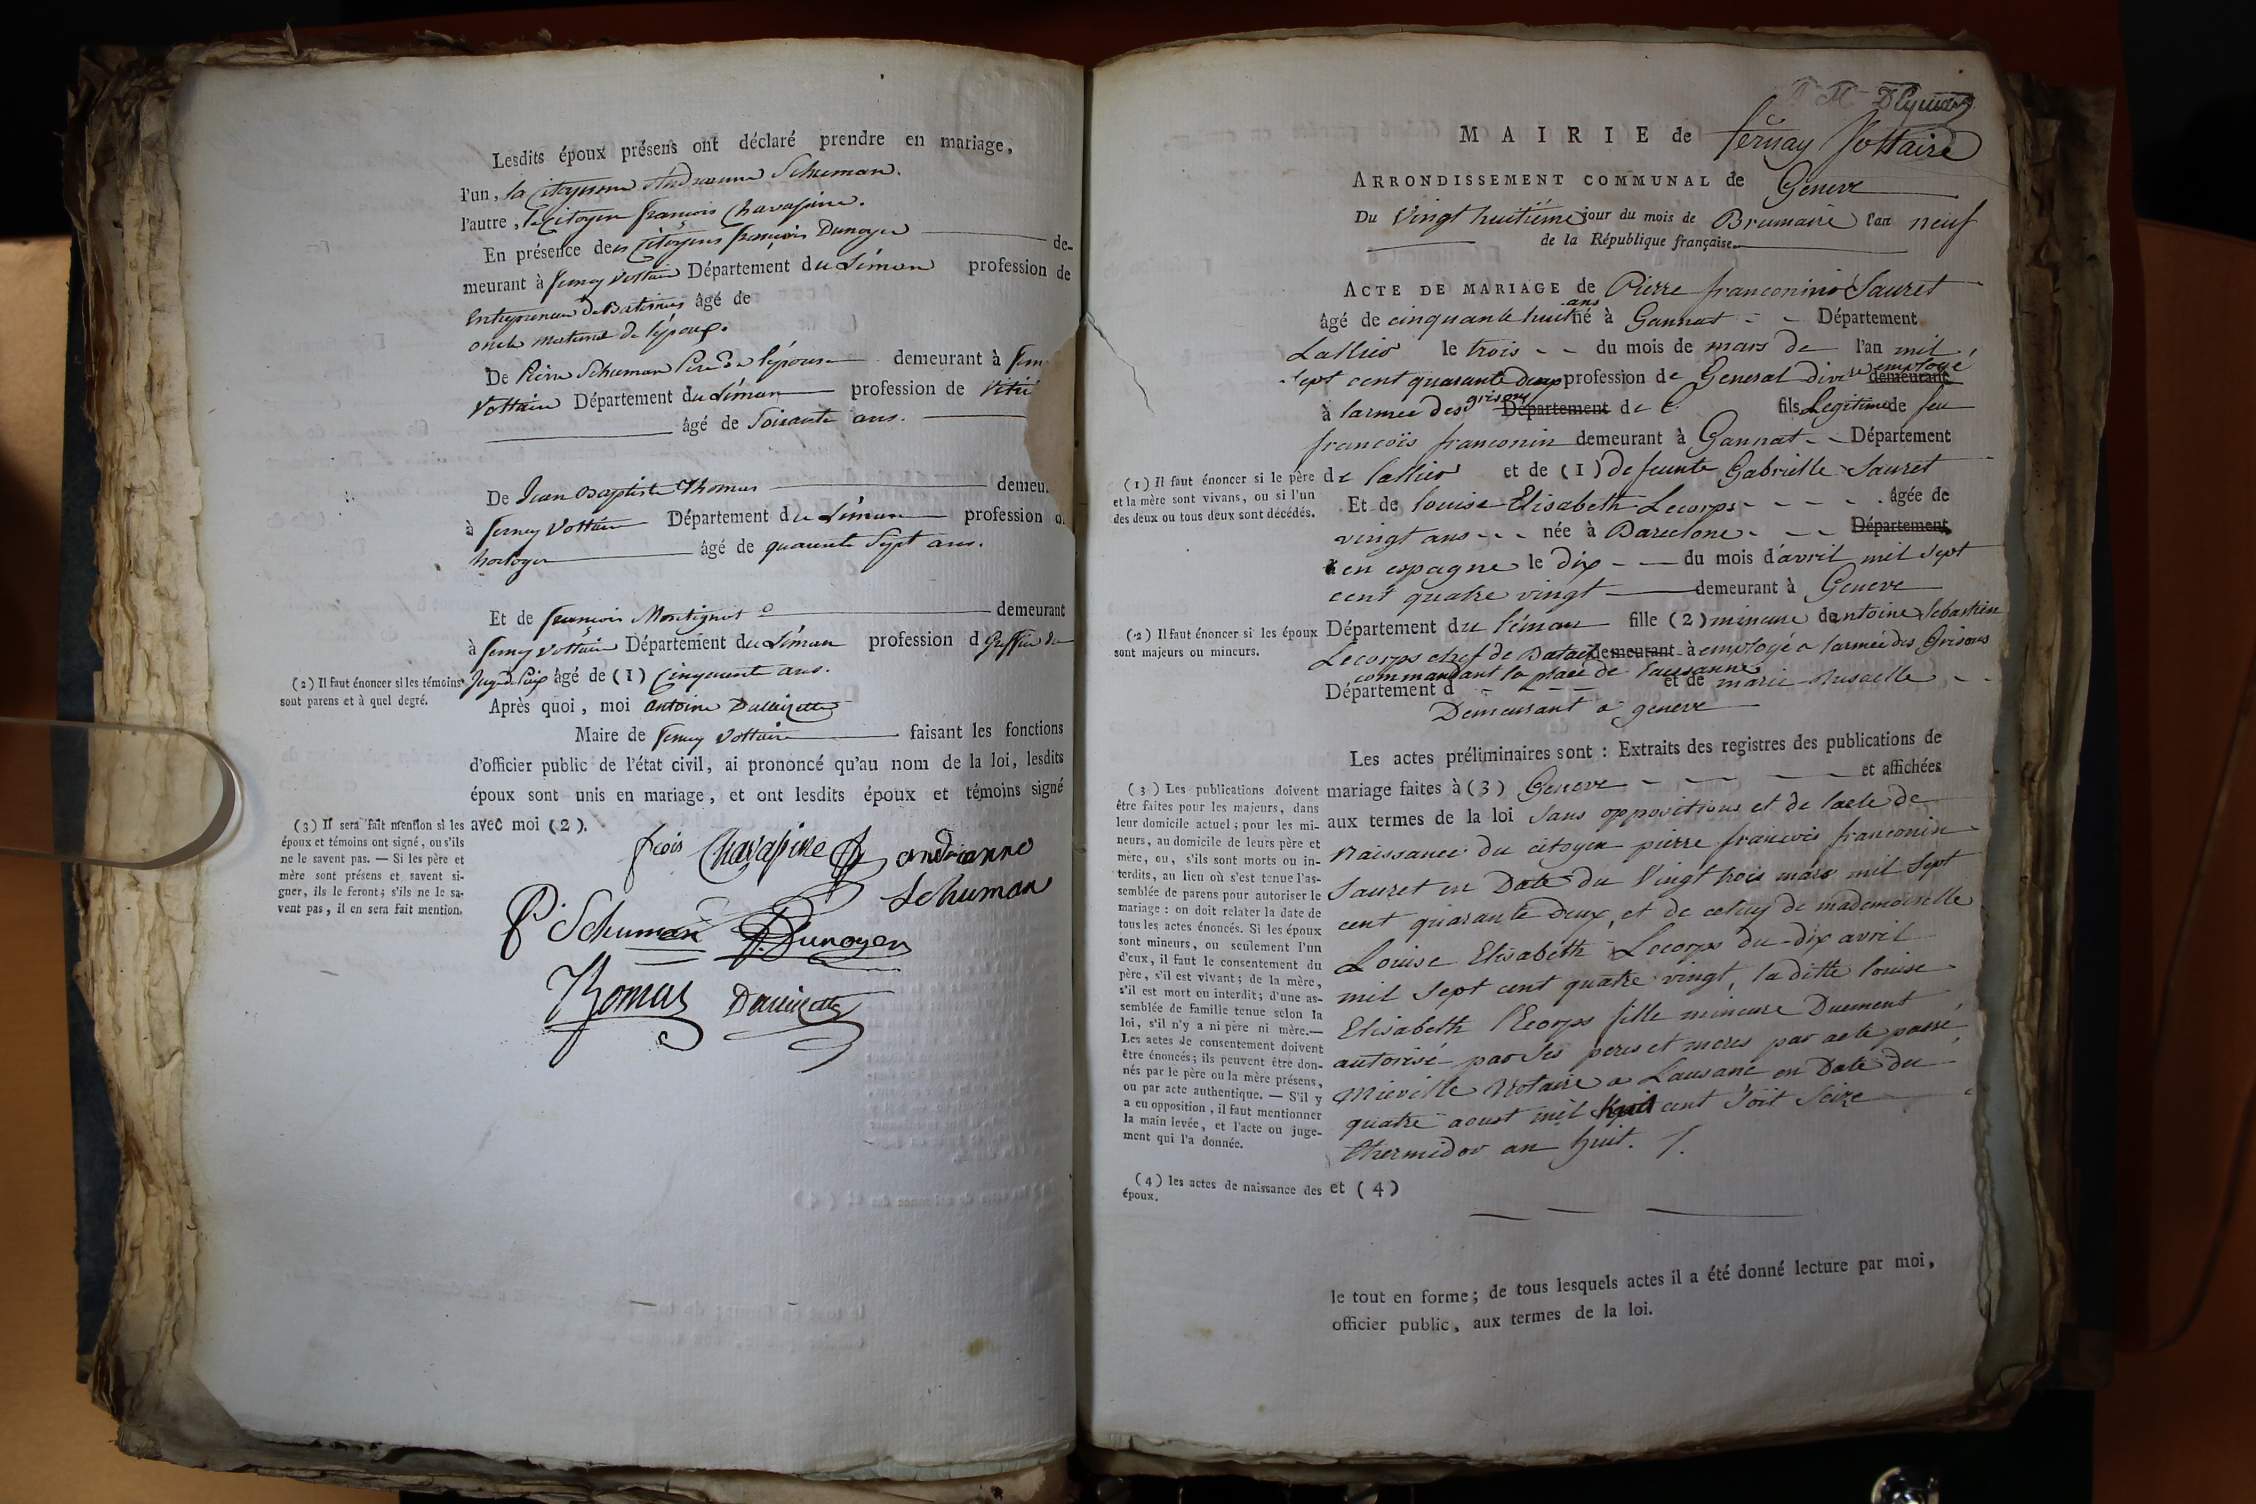 Lesdits époux présens ont déclaré prendre en mariage,
l'un, la Citoyenne Andrianne Schuman.
l'autre, le Citoyen françois Chavapine.
En présence des Citoyens françois Dunoyer de-
meurant à ferney Voltaire Département du Léman profession de
Entrepreneur de Batimens âgé de
oncle maternel de l'epoux.
De Pierre Schuman Pere de l'épouse demeurant à fern
Voltaire Département du Léman profession de
âgé de Soixante ans.
De Jean Baptiste Thomas demeu
à ferney Voltaire Département du Léman profession
horloger âgé de quarente Sept ans.
Et de françois Montignot demeurant
à ferney Voltaire Département du Léman profession d Greffier du
(2) Il faut énoncer si les témoins
sont parens et à quel degré.
Juge de Paix âgé de (1) Cinquante ans.
Après quoi, moi Antoine
Maire de ferney Voltaire faisant les fonctions
d'officier public de l'état civil, ai prononcé qu'au nom de la loi, lesdits
époux sont unis en mariage, et ont lesdits époux et témoins signé
avec moi (2).
(3) Il sera fait mention si les
époux et témoins ont signé, ou s'ils
ne le savent pas. — Si les père et
mère sont présens et savent si-
gner, ils le feront; s'ils ne le sa-
vent pas, il en sera fait mention.
fcois Chavapine andrianne
Schuman
P. Schuman Dunoyer
Thomas
MAIRIE de fernay Voltaire
ARRONDISSEMENT COMMUNAL de Geneve
Du Vingt huitiéme jour du mois de Brumaire l'an neuf
de la République française.
ACTE DE MARIAGE de Pierre franconin Sauret
âgé de cinquante huit ans né à Gannat - - Département
Lallier le trois - - du mois de mars de l'an mil
sept cent quarante deux profession de General divre employé demeurant
à larmée des grisons Département de fils Legitime de feu
francois franconin demeurant à Gannat - - Département
de lallier et de (1) de feunte Gabrielle Sauret
(1) Il faut énoncer si le père
et la mère sont vivans, ou si l'un
des deux ou tous deux sont décédés.
Et de louise Elisabeth Lecorps - - - - âgée de
vingt ans - - - née à Barcelone - - - Département
en espagne le dix - - du mois d'avril mil sept
cent quatre vingt demeurant à Geneve
Département du léman fille (2) mineure dantoine Sebastien
(2) Il faut énoncer si les époux
sont majeurs ou mineurs.
Lecorps chef de Batail demeurant à employé a larmée des Grisons
commandant la place de laussanne
Département d et de marie - -
Demeurant a geneve
Les actes préliminaires sont : Extraits des registres des publications de
mariage faites à (3) Geneve - - - - et affichées
aux termes de la loi Sans oppositions et de lacte de
Naissance du citoyen pierre francois franconin
Sauret en Date du Vingt trois mars mil sept
cent quarante deux, et de celuy de mademoiselle
Louise Elisabeth Lecorps du dix avril
mil sept cent quatre vingt, la ditte louise
Elisabeth lecorps fille mineure Duement
autorisé par ses peres et meres par acte passé
Mieville Notaire a Lausane en Date du
quatre aoust mil huit cent Soit Seize
thermidor an huit. /.
(3) Les publications doivent
être faites pour les majeurs, dans
leur domicile actuel; pour les mi-
neurs, au domicile de leurs père et
mère, ou, s'ils sont morts ou in-
terdits, au lieu où s'est tenue l'as-
semblée de parens pour autoriser le
mariage : on doit relater la date de
tous les actes énoncés. Si les époux
sont mineurs, ou seulement l'un
d'eux, il faut le consentement du
père, s'il est vivant; de la mère,
s'il est mort ou interdit; d'une as-
semblée de famille tenue selon la
loi, s'il n'y a ni père ni mère.—
Les actes de consentement doivent
être énoncés; ils peuvent être don-
nés par le père ou la mère présens,
ou par acte authentique. — S'il y
a eu opposition, il faut mentionner
la main levée, et l'acte ou juge-
ment qui l'a donnée.
(4) les actes de naissance des
époux.
et (4)
le tout en forme; de tous lesquels actes il a été donné lecture par moi,
officier public, aux termes de la loi.